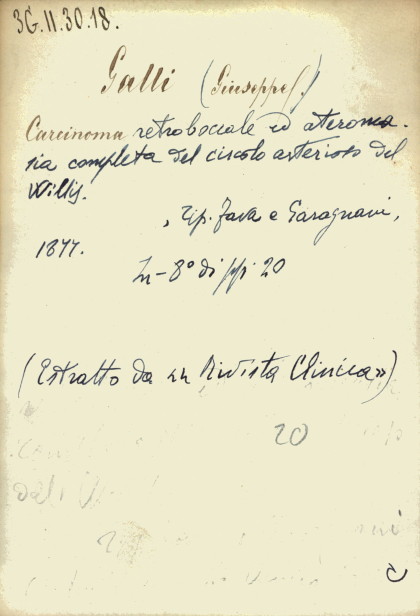 3G.II.30.18.
Galli (Giuseppe)
Carcinoma retrobociale ed ateroma-
sia completa del circolo arterioso del
Willis.
, Tip. Fava e Garagnani,
1877.
In-8° di pp. 20
(Estratto da «La Rivista Clinica»)
20